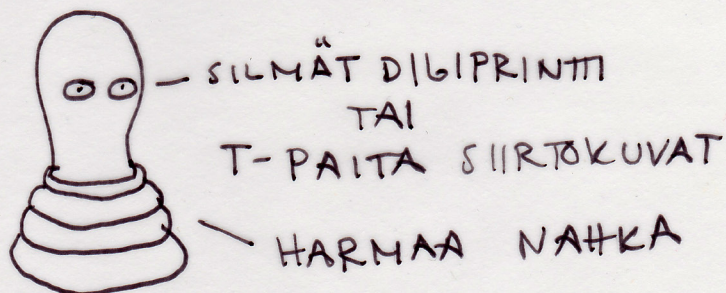 SILMÄT DIGIPRINTTI
TAI
T-PAITA SIIRTOKUVAT
HARMAA NAHKA